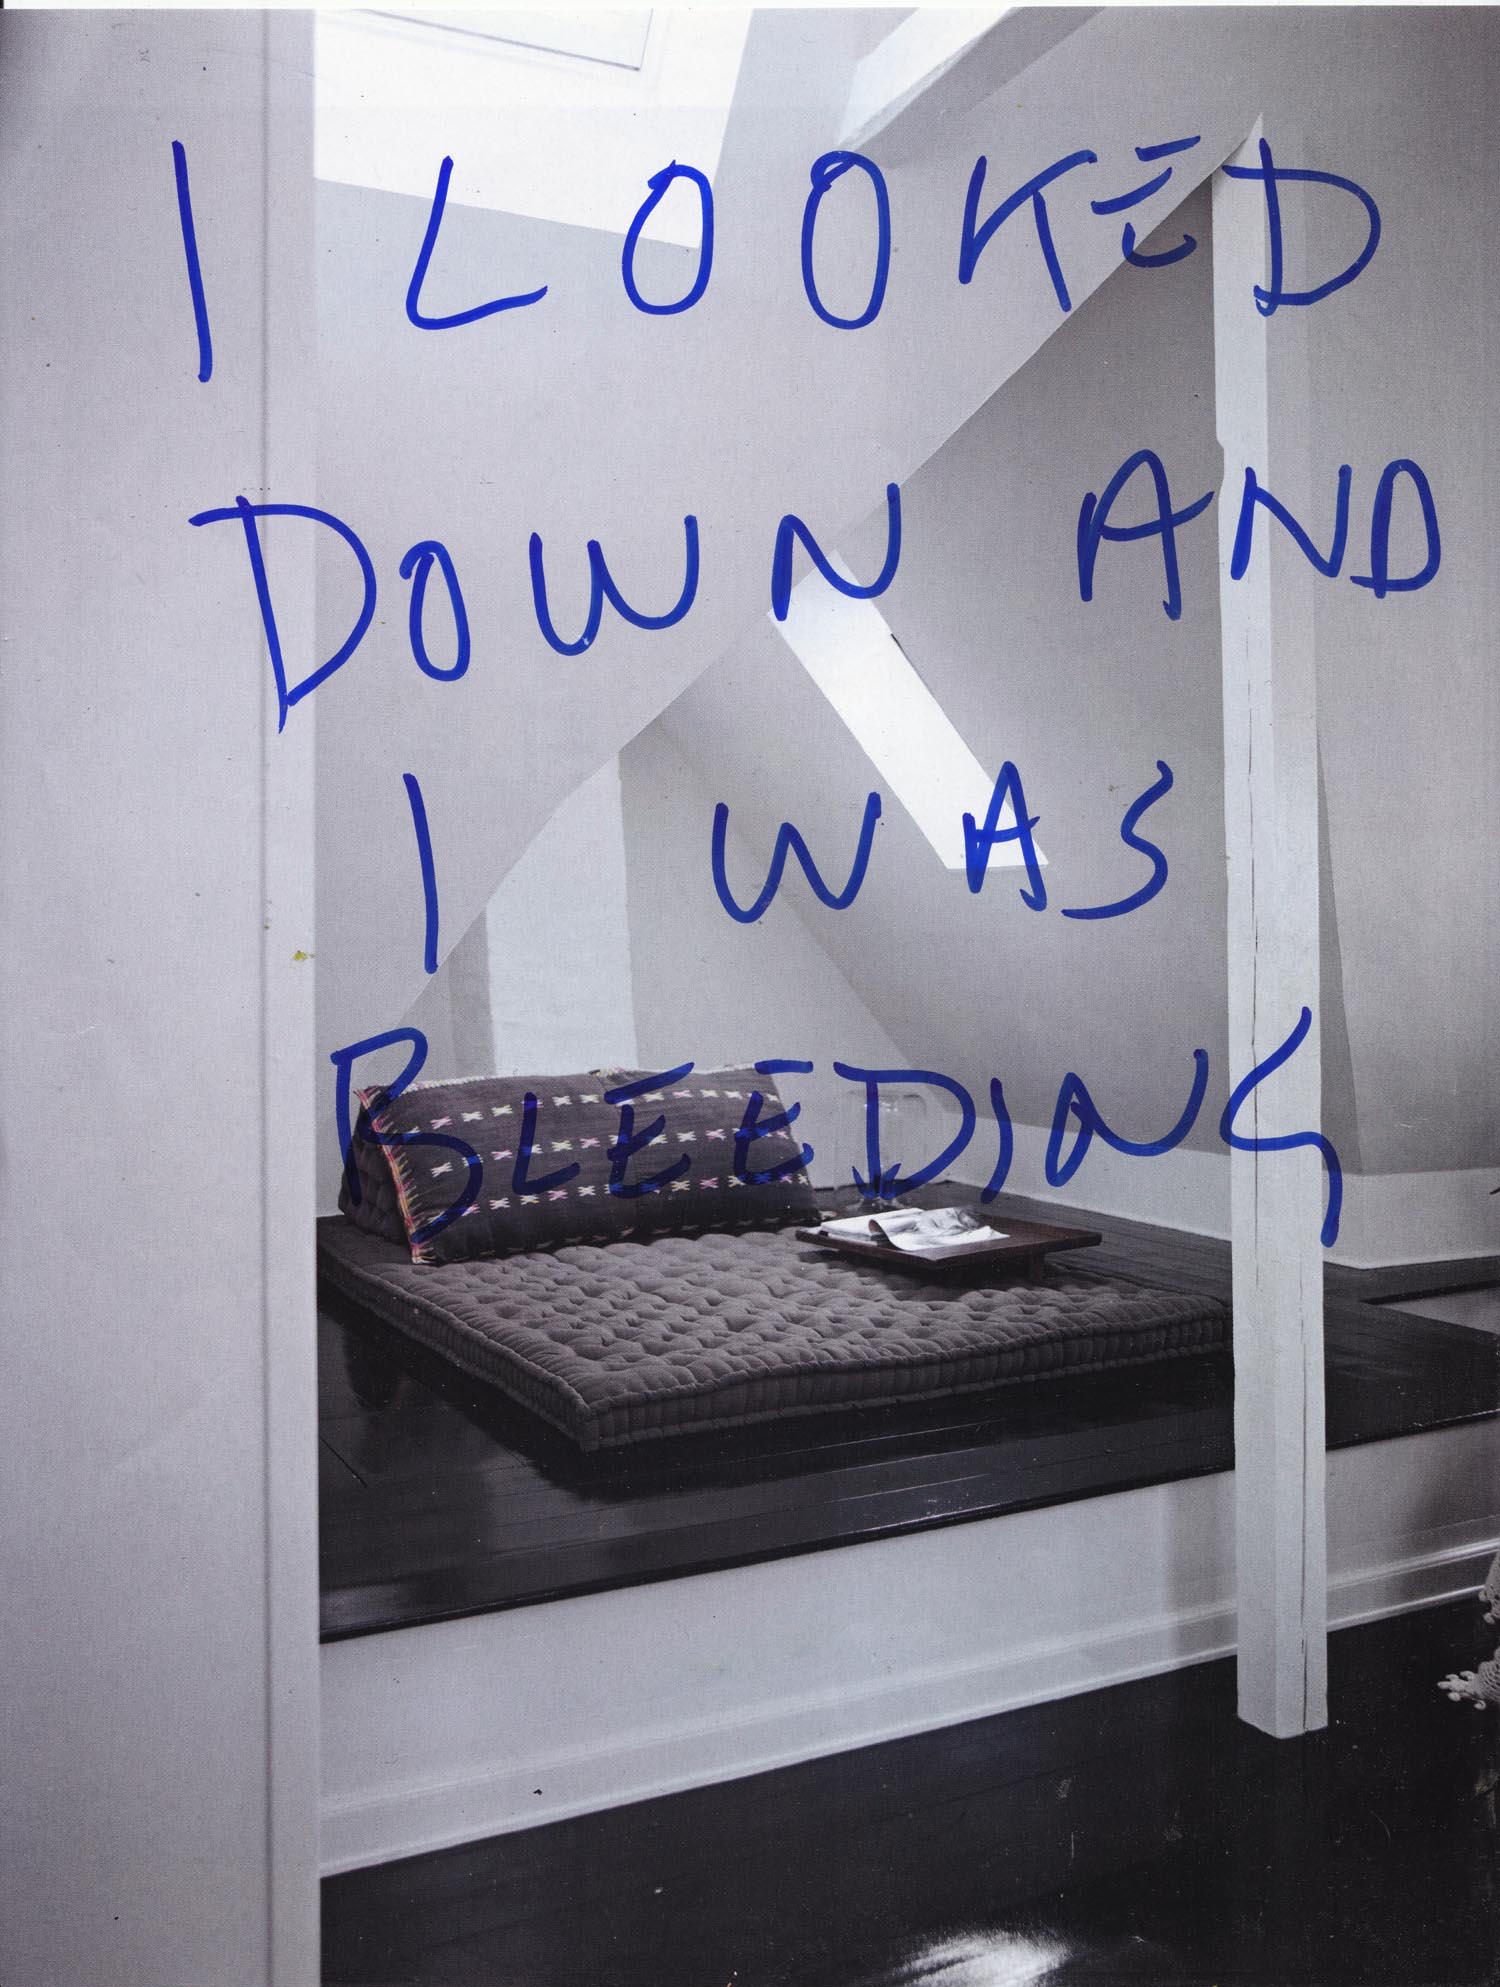 I LOOKED
DOWN AND
I WAS
BLEEDING